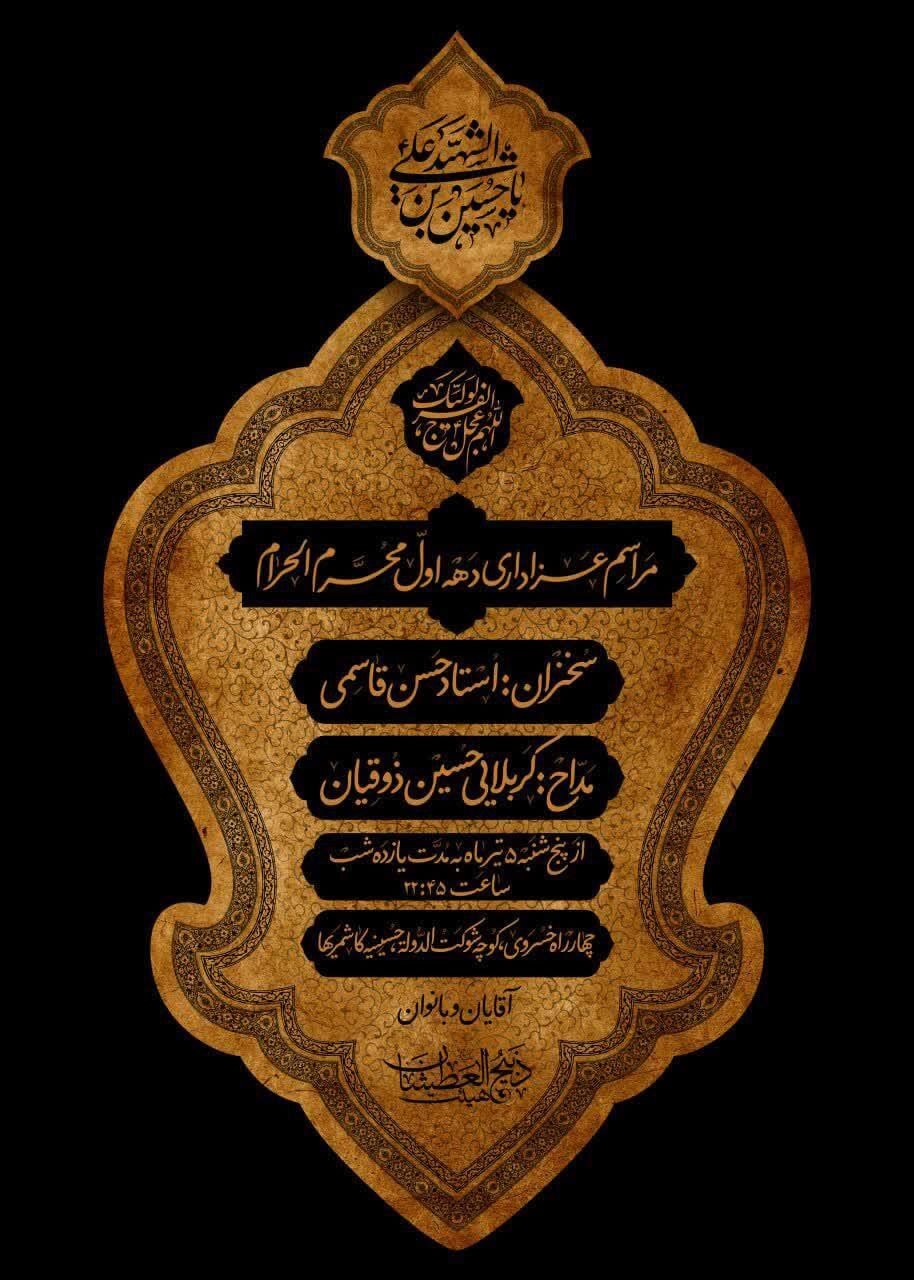 یا حسین بن علی الشهید
اللهم عجل لولیک الفرج
مراسم عزاداری دهه اول محرم الحرام
سخنران: استاد حسن قاسمی
مداح: کربلایی حسین ذوقیان
از پنج شنبه ۵ تیر ماه به مدت یازده شب
ساعت ۲۲:۴۵
چهارراه خسروی، کوچه شوکت الدوله، حسینیه کاشمریها
آقایان و بانوان
هیئت ذبیح العطشان